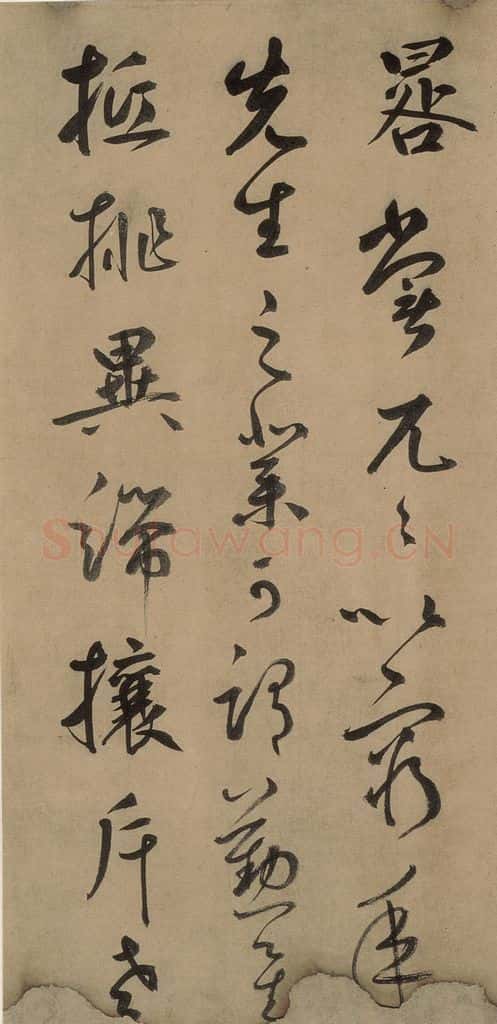 晷常兀々以窮年
先生之業可謂勤矣
抵排異端攘斥老
Shufawang.CN